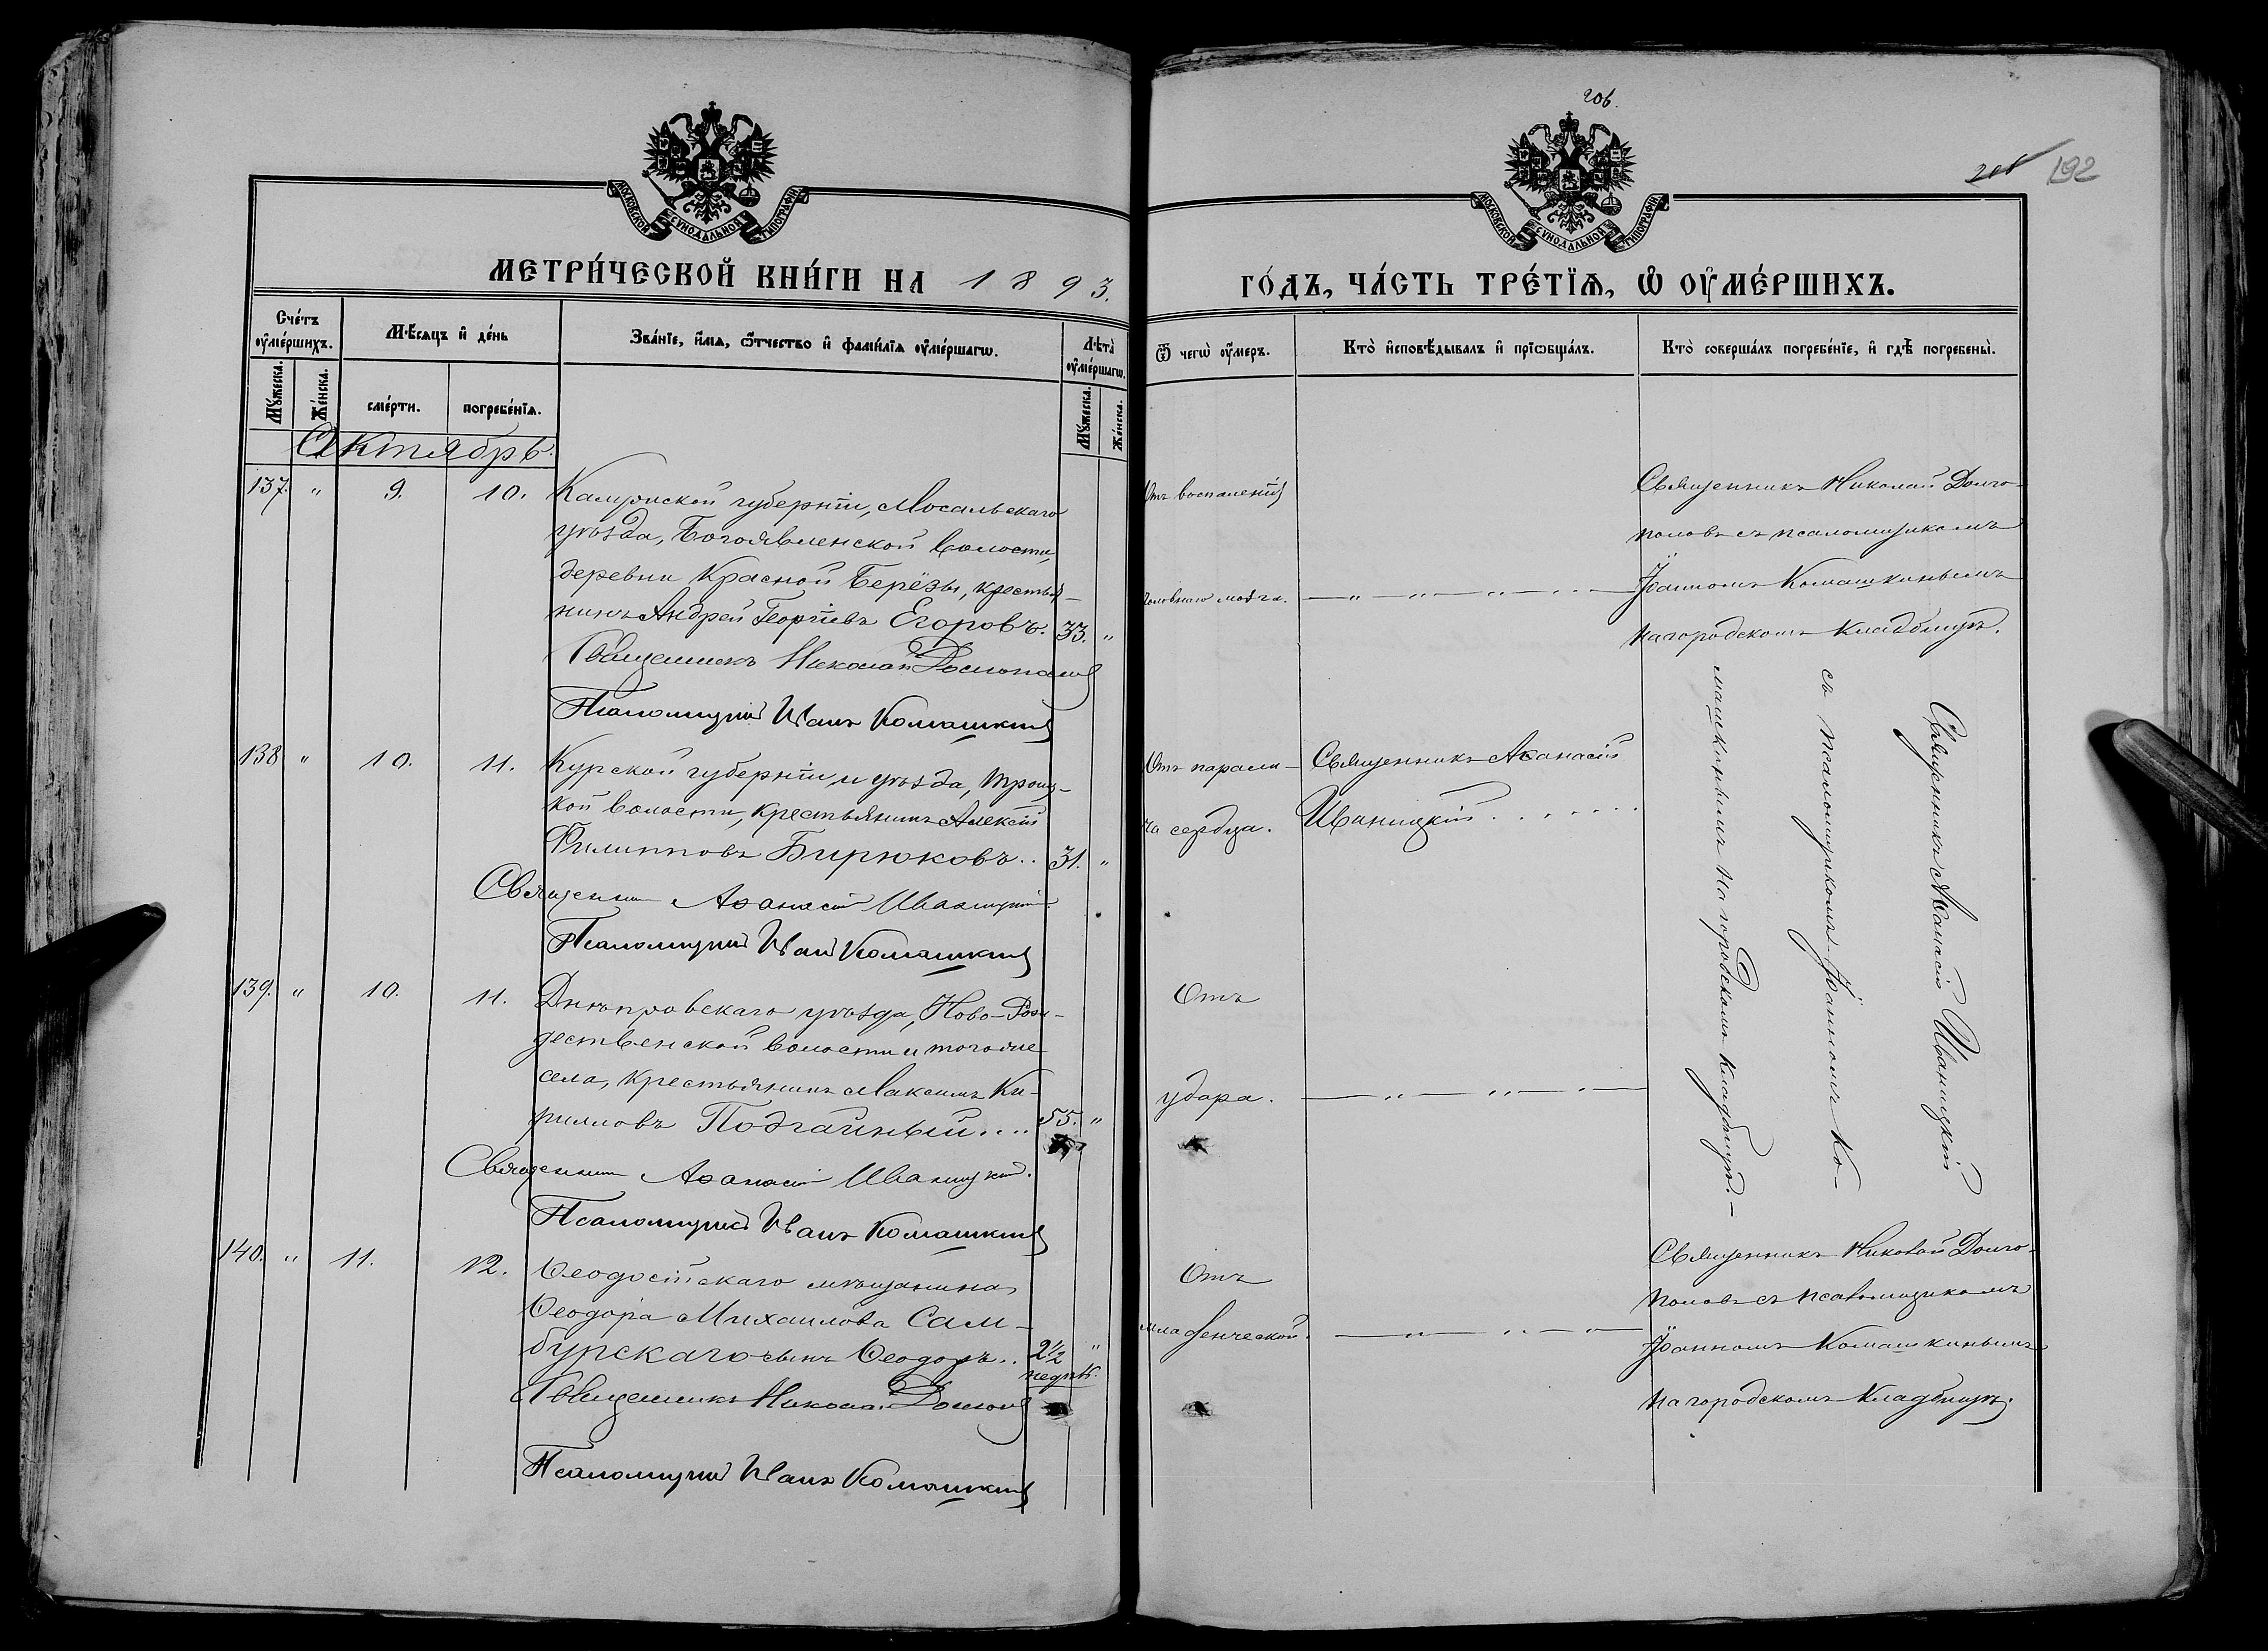 206.
206 192
МОСКОВСКОЙ СѴНОДАЛЬНОЙ ТИПОГРАФІИ
МОСКОВСКОЙ СѴНОДАЛЬНОЙ ТИПОГРАФІИ
МЕТРИ́ЧЕСКОЙ КНИ́ГИ НА 1893.
ГО́ДЪ, ЧА́СТЬ ТРЕ́ТЇѦ, Ѡ҆ ОУ҆МЕ́РШИХЪ.
Сче́тъ оу҆ме́ршихъ.
Мѣ́сѧцъ и҆ де́нь
Зва́нїе, и҆́мѧ, ѻ҆́тчество и҆ фами́лїѧ оу҆ме́ршагѡ.
Лѣта̀ оу҆ме́ршагѡ.
Мꙋ́жеска. Же́нска.
сме́рти. погребе́нїѧ.
Мꙋ́жеска. Же́нска.
Ѿ чегѡ̀ оу҆́меръ.
Кто̀ и҆сповѣ́дывалъ и҆ прїѡбща́лъ.
Кто̀ соверша́лъ погребе́нїе, и҆ гдѣ̀ погребены̀.
Октябрь.
137. " 9. 10. Калужской губерніи, Мосальскаго
уѣзда, Богоявленской волости,
деревни Красной Берёзы, крестья-
нинъ Андрей Георгіевъ Егоровъ. 33. "
Священникъ Николай Долгополовъ
Псаломщикъ Иванъ Комашкинъ
Отъ воспаленія
головнаго мозга. — " — " — " —
Священникъ Николай Долго-
половъ съ псаломщикомъ
Іоанномъ Комашкинымъ
на городскомъ кладбищѣ.
138 " 10. 11. Курской губерніи и уѣзда, Троиц-
кой волости, крестьянинъ Алексѣй
Филипповъ Бирюковъ.. 31. "
Священникъ Аѳанасій Иваницкій
Псаломщикъ Иванъ Комашкинъ
Отъ парали-
ча сердца.
Священникъ Аѳанасій
Иваницкій . . . . . .
Священникъ Аѳанасій Иваницкій
съ псаломщикомъ Іоанномъ Ко-
машкинымъ на городскомъ кладбищѣ. —
139. " 10. 11. Днѣпровскаго уѣзда, Ново-Рож-
дественской волости и тогоже
села, крестьянинъ Максимъ Ки-
рилловъ Подгайный.... 55. "
Священникъ Аѳанасій Иваницкій.
Псаломщикъ Иванъ Комашкинъ
Отъ
удара. — " — " — " —
140. " 11. 12. Ѳеодосійскаго мѣщанина
Ѳеодора Михаилова Сам-
бурскаго сынъ Ѳеодоръ.. 2½ "
недѣль.
Священникъ Николай Долгополовъ
Псаломщикъ Иванъ Комашкинъ
Отъ
младенческой. — " — " — " —
Священникъ Николай Долго-
половъ съ псаломщикомъ
Іоанномъ Комашкинымъ
на городскомъ кладбищѣ.